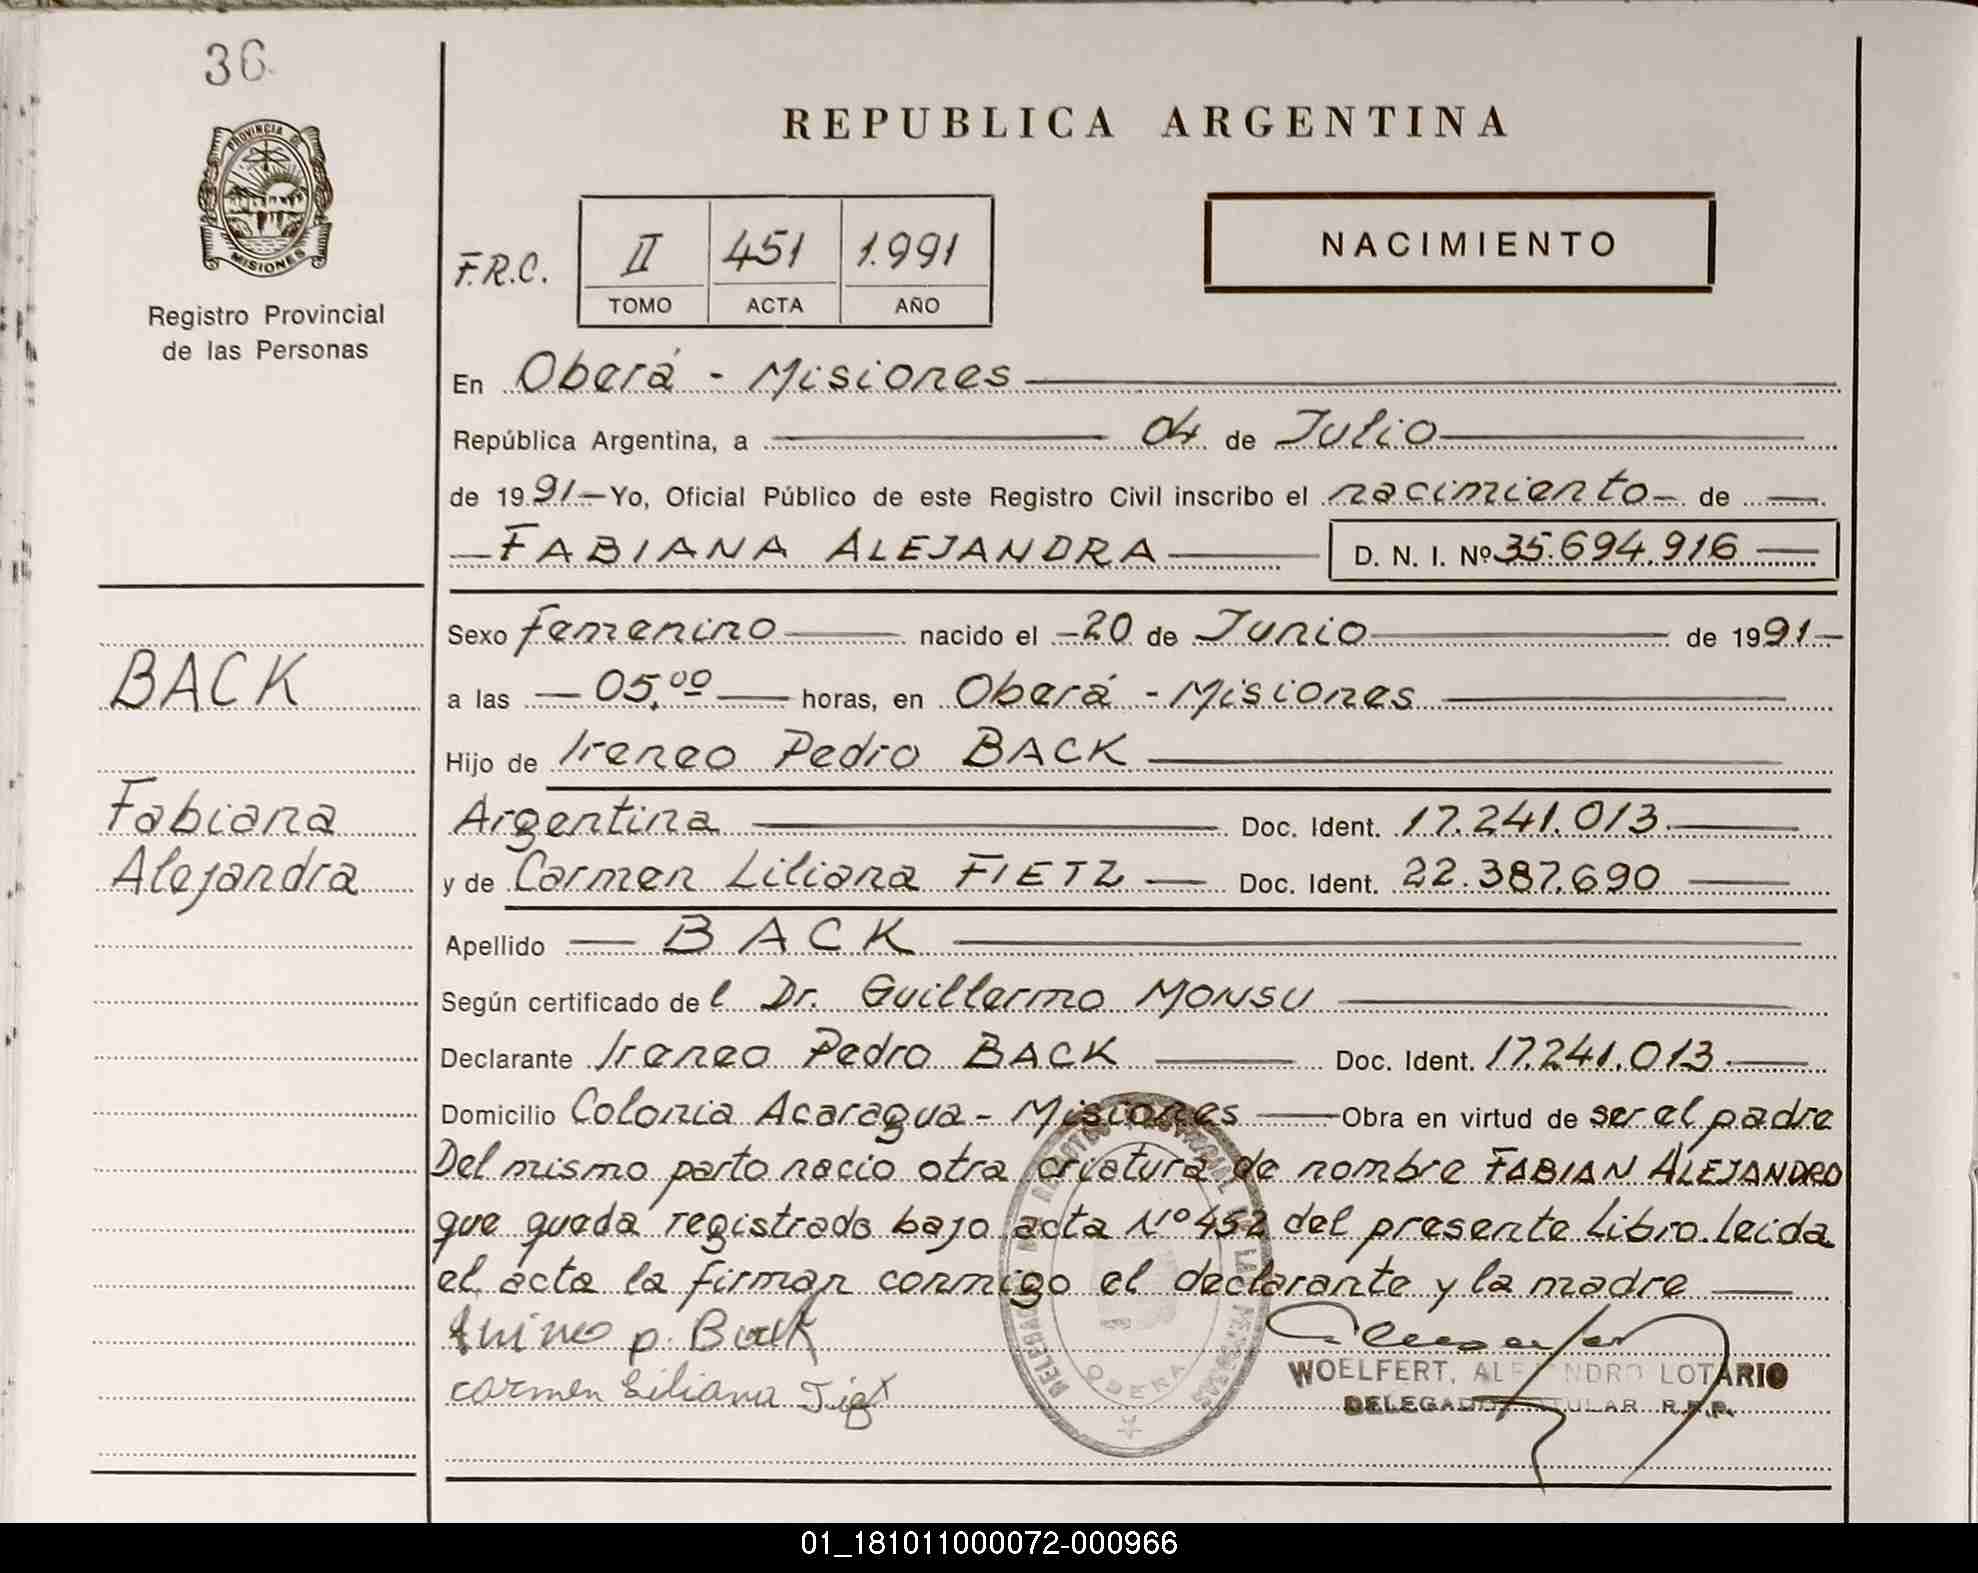 36
PROVINCIA DE
MISIONES
Registro Provincial
de las Personas
REPUBLICA ARGENTINA
F.R.C.
II 451 1.991
TOMO ACTA AÑO
NACIMIENTO
En Oberá - Misiones
República Argentina, a 04 de Julio
de 1991 Yo, Oficial Público de este Registro Civil inscribo el nacimiento de
FABIANA ALEJANDRA D. N. I. Nº 35.694.916
Sexo femenino nacido el 20 de Junio de 1991
a las 05,00 horas, en Oberá - Misiones
Hijo de Ireneo Pedro BACK
Argentina Doc. Ident. 17.241.013
y de Carmen Liliana FIETZ Doc. Ident. 22.387.690
Apellido BACK
Según certificado del Dr. Guillermo MONSU
Declarante Ireneo Pedro BACK Doc. Ident. 17.241.013
Domicilio Colonia Acaragua - Misiones Obra en virtud de ser el padre
Del mismo parto nacio otra criatura de nombre FABIAN ALEJANDRO
que queda registrado bajo acta Nº 452 del presente Libro. Leida
el acta la firman conmigo el declarante y la madre
p. Back
carmen Liliana
WOELFERT, ALEJANDRO LOTARIO
DELEGADO TITULAR R.P.P.
OBERA
BACK
Fabiana
Alejandra
01_181011000072-000966